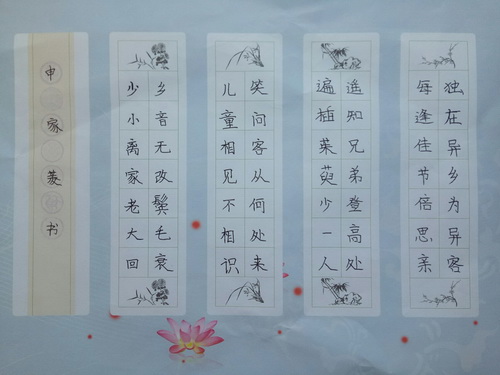 独在异乡为异客
每逢佳节倍思亲
遥知兄弟登高处
遍插茱萸少一人
少小离家老大回
乡音无改鬓毛衰
儿童相见不相识
笑问客从何处来
申家菱书